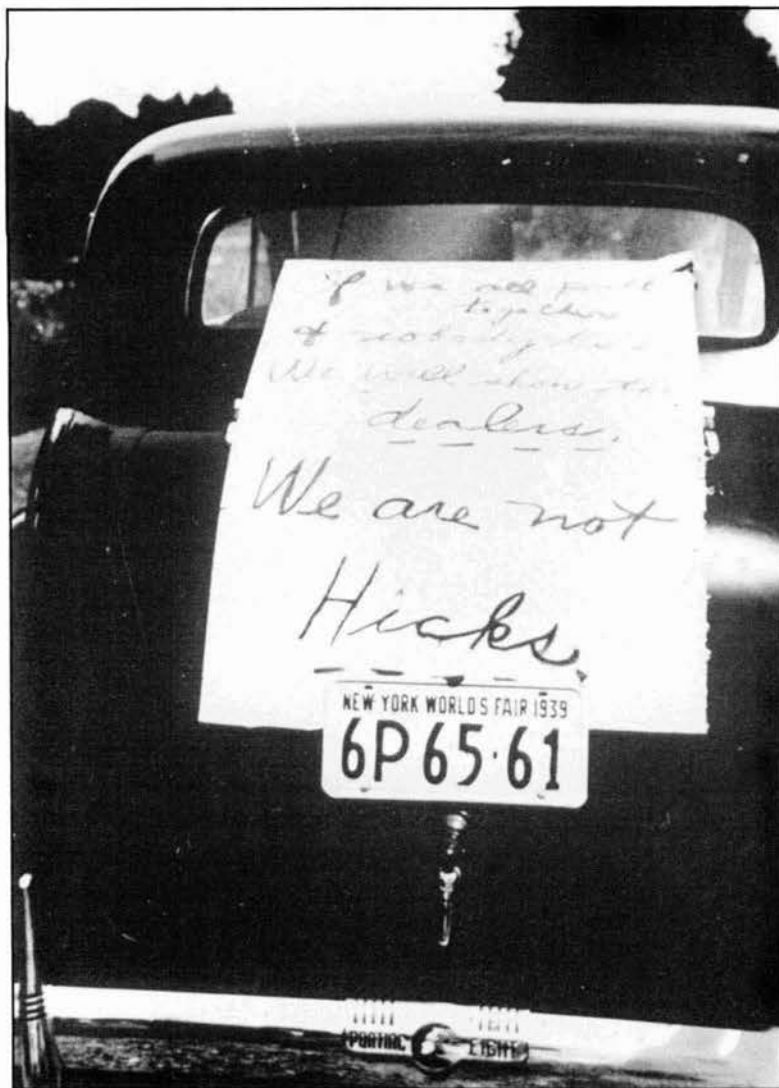 if we all pull
together
& nobody
We will show the
dealers.
We are not
Hicks.
NEW YORK WORLD'S FAIR 1939
6P 65·61
PONTIAC EIGHT